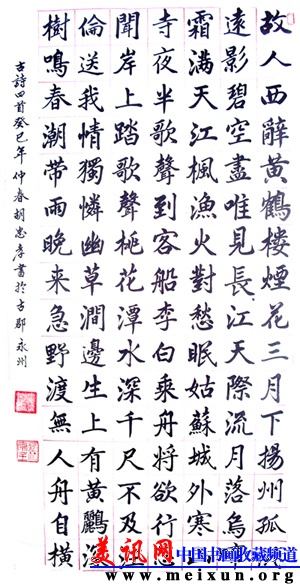 故人西辭黃鶴樓煙花三月下揚州孤
遠影碧空盡唯見長江天際流月落烏
霜滿天江楓漁火對愁眠姑蘇城外寒
寺夜半歌聲到客船李白乘舟將欲行忽
聞岸上踏歌聲桃花潭水深千尺不及
倫送我情獨憐幽草澗邊生上有黃鸝深
樹鳴春潮帶雨晚来急野渡無人舟自橫
古詩四首癸巳年仲春胡忠孝書於古郡永州
美讯网 中国书画收藏频道
www.meixun.org